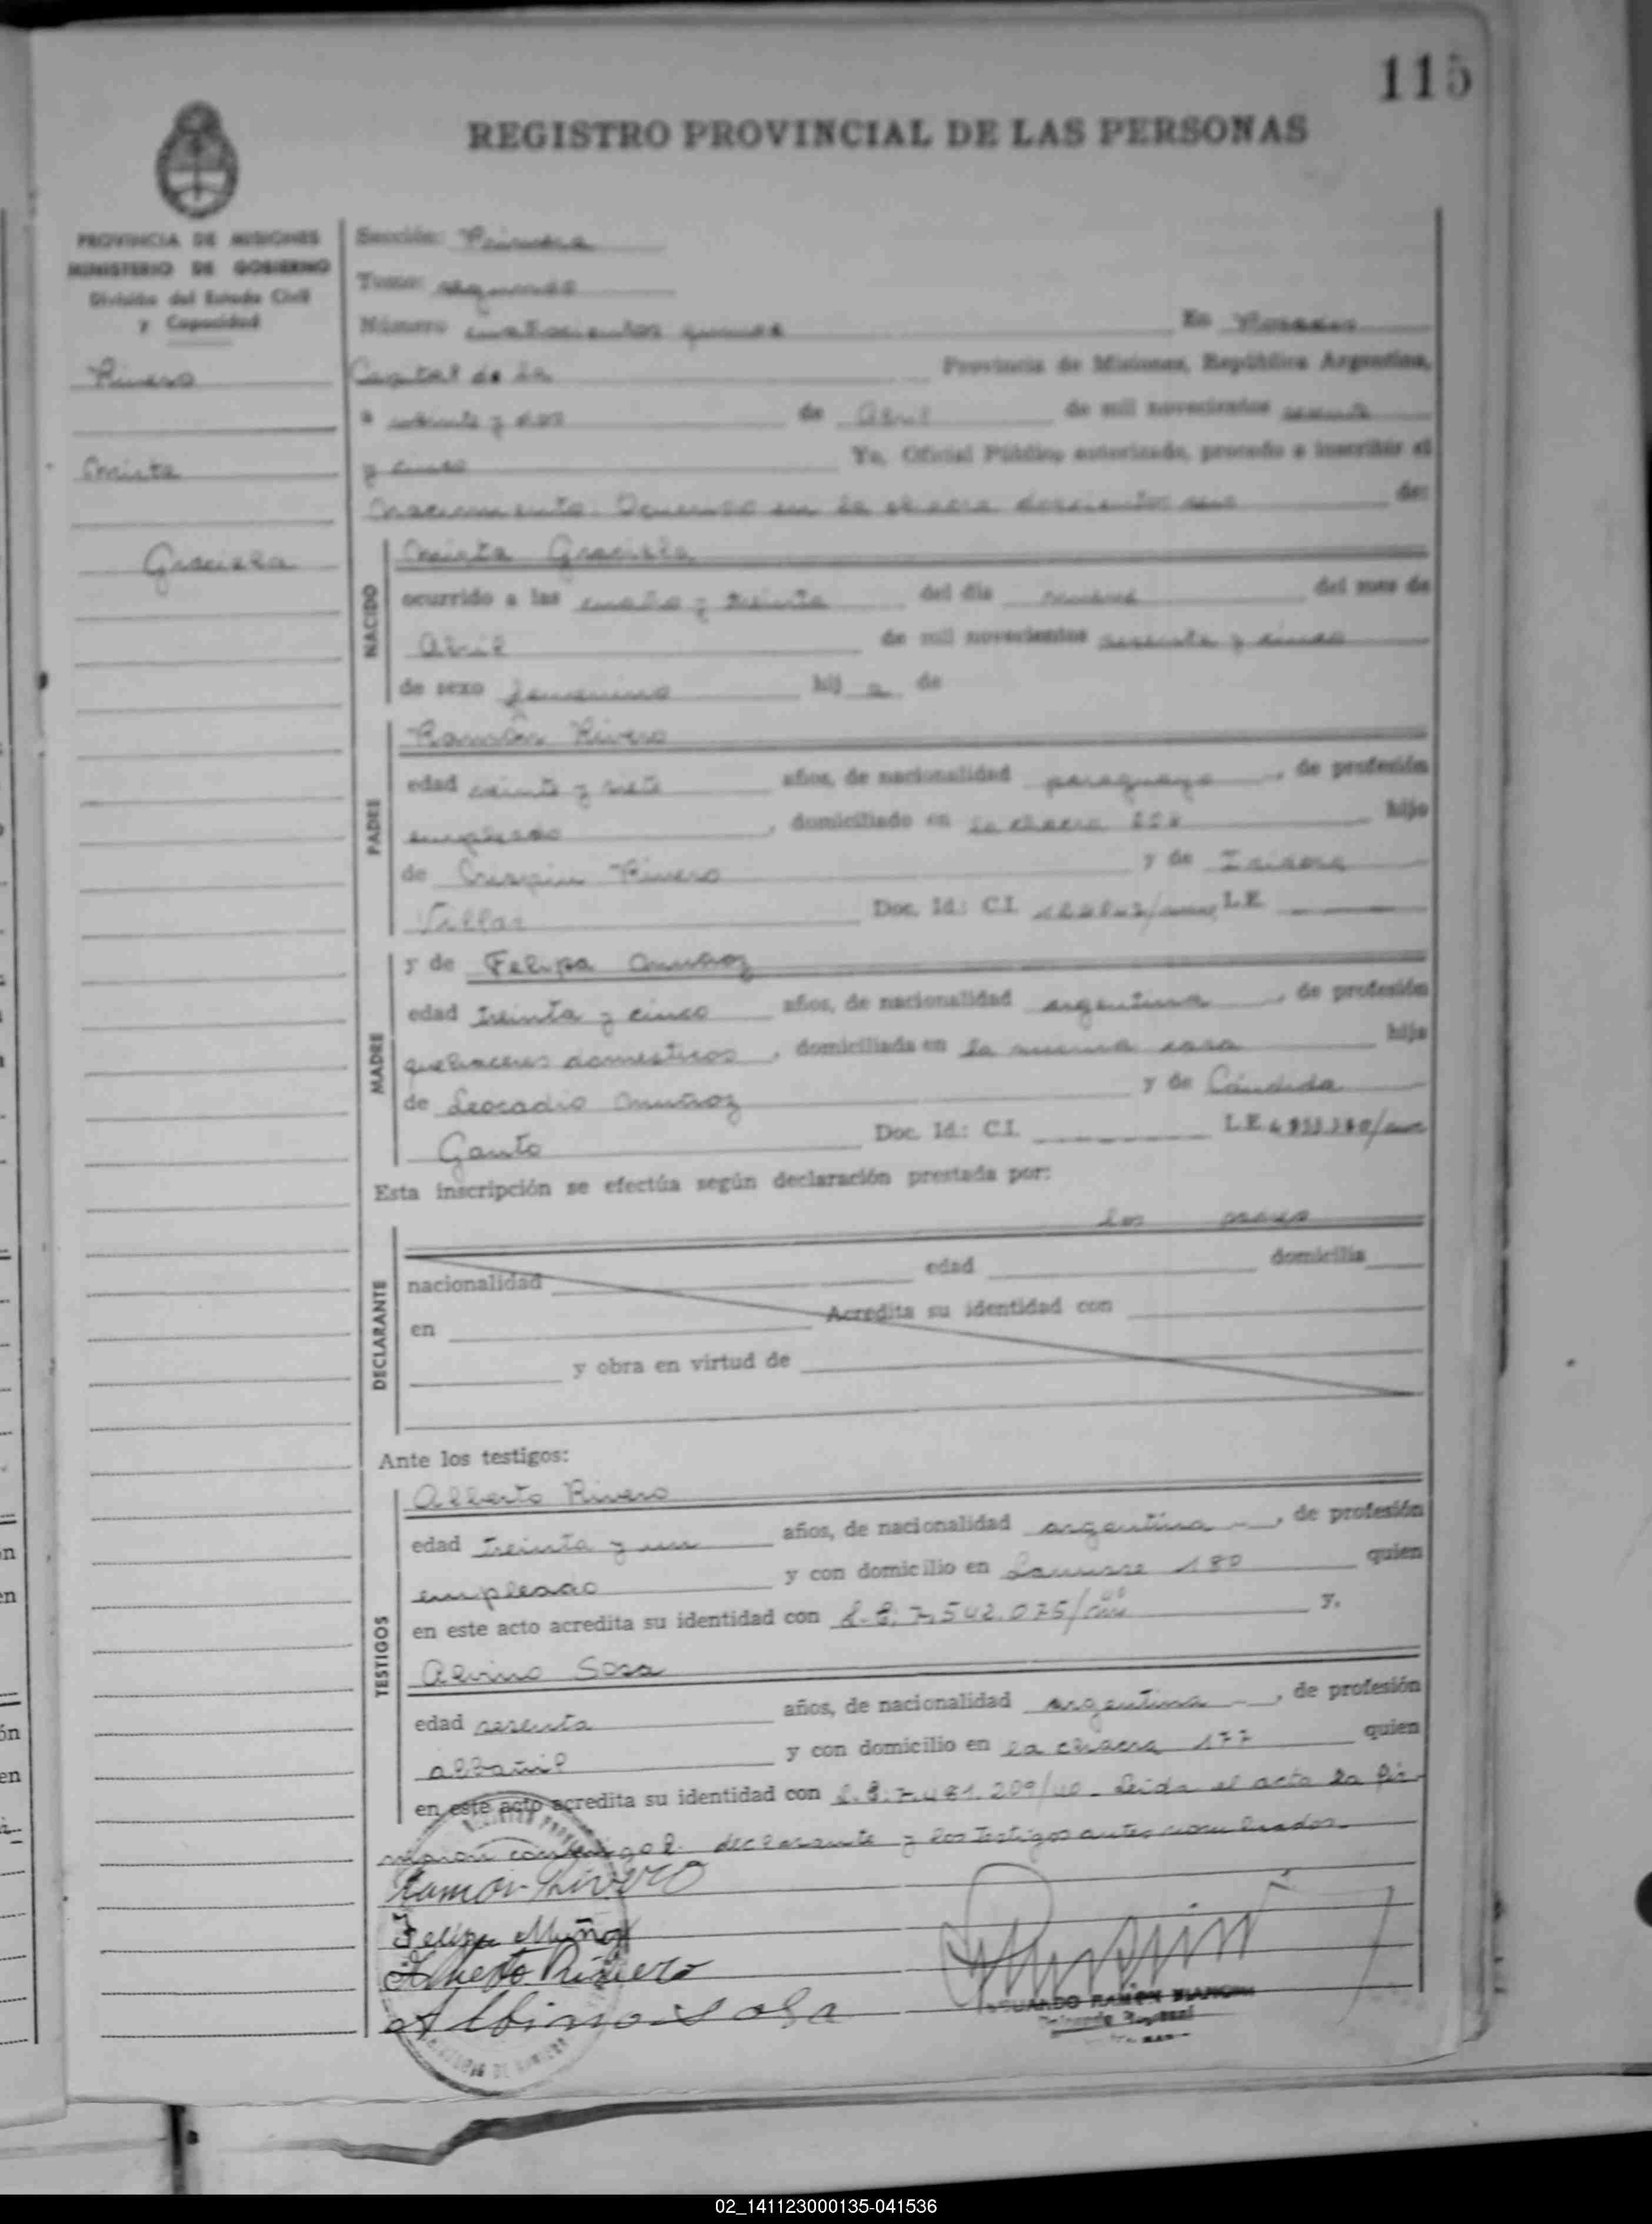 115
REGISTRO PROVINCIAL DE LAS PERSONAS
PROVINCIA DE MISIONES
MINISTERIO DE GOBIERNO
División del Estado Civil
y Capacidad
Rivero
Mirta
Graciela
Sección: Primera
Tomo: segundo
Número cuatrocientos quince En Posadas
Capital de la Provincia de Misiones, República Argentina,
a veinte y dos de Abril de mil novecientos sesenta
y cinco Yo, Oficial Público autorizado, procedo a inscribir el
Nacimiento. Ocurrido en la chacra doscientos seis de:
NACIDO
Mirta Graciela
ocurrido a las cuatro y treinta del día nueve del mes de
Abril de mil novecientos sesenta y cinco
de sexo femenino hij a de
PADRE
Ramón Rivero
edad veinte y siete años, de nacionalidad paraguayo, de profesión
empleado, domiciliado en la chacra hijo
de Crespin Rivero y de Isidora
Villar Doc. Id.: C.I. L.E.
MADRE
y de Felipa Muñoz
edad treinta y cinco años, de nacionalidad argentina, de profesión
quehaceres domesticos, domiciliada en la misma casa hija
de Leocadio Muñoz y de Cándida
Gauto Doc. Id.: C.I. L.E.
Esta inscripción se efectúa según declaración prestada por:
los padres
DECLARANTE
nacionalidad edad domicilia
en Acredita su identidad con
y obra en virtud de
Ante los testigos:
TESTIGOS
Alberto Rivero
edad treinta y un años, de nacionalidad argentina, de profesión
empleado y con domicilio en Lanusse 180 quien
en este acto acredita su identidad con L.E. 7.542.075/ y.
Alvino Sosa
edad sesenta años, de nacionalidad argentina, de profesión
albañil y con domicilio en la chacra 177 quien
en este acto acredita su identidad con L.E. 7.481.209/40. Leida el acta la fir-
maron conmigo l. declarante y los testigos antes nombrados.
Ramon Rivero
Felipa Muñoz
Alberto Rivero
Albino Sosa
EDUARDO RAMON BIANCHI
02_141123000135-041536